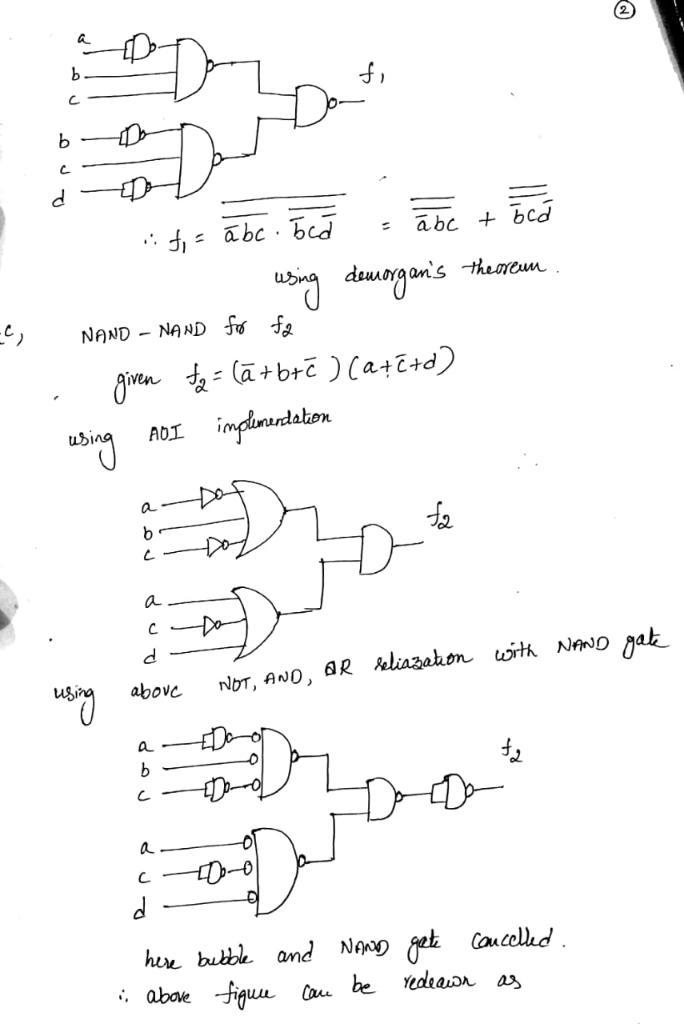 2
a
b
c
f₁
b
c
d
∴ f₁ = \overline{\overline{\overline{a}bc} · \overline{\overline{b}c\overline{d}}} = \overline{\overline{\overline{a}bc}} + \overline{\overline{\overline{b}c\overline{d}}}
using demorgan's theorem.
c, NAND - NAND for f₂
given f₂ = (ā+b+c̄)(a+c̄+d)
using AOI implimendation
a
b
c
f₂
a
c
d
using above NOT, AND, OR reliazation with NAND gate
a
b
c
f₂
a
c
d
here bubble and NAND gate cancelled.
∴ above figure can be redrawn as